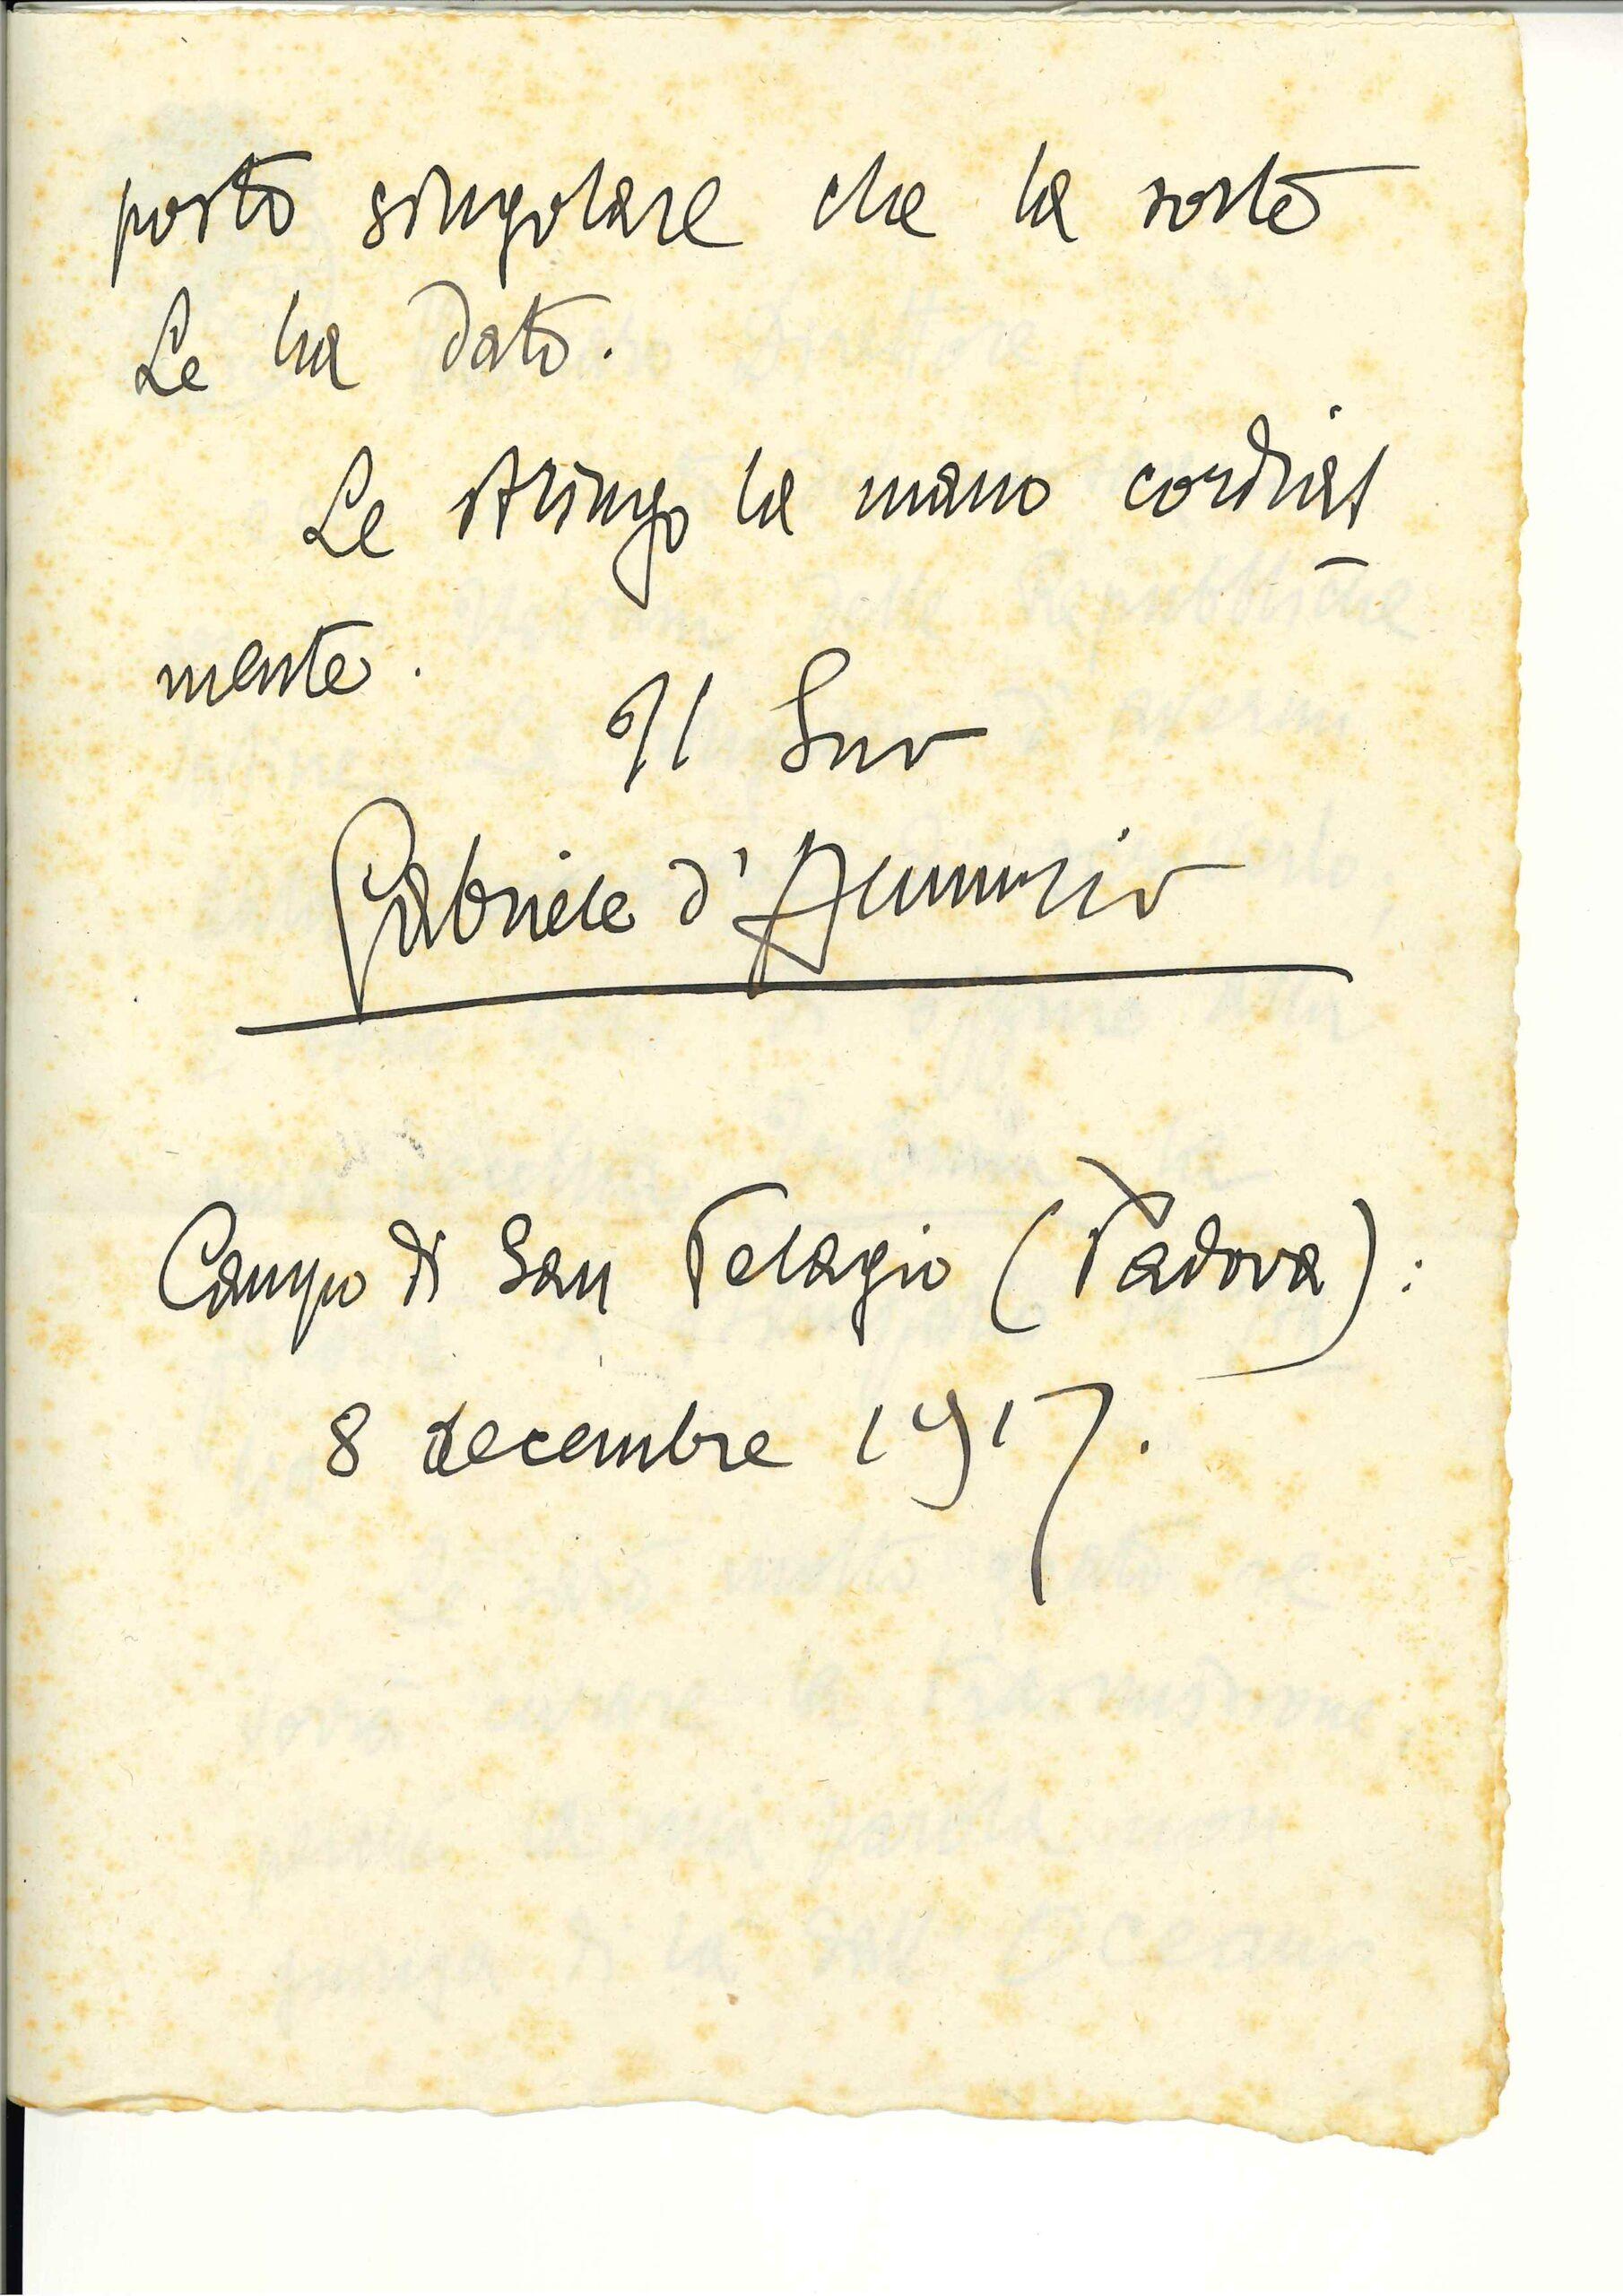 posto singolare che la sorte
Le ha dato.
Le stringo la mano cordial
mente.
Il Suo
Gabriele d'Annunzio
Campo di San Pelagio (Padova):
8 decembre 1917.